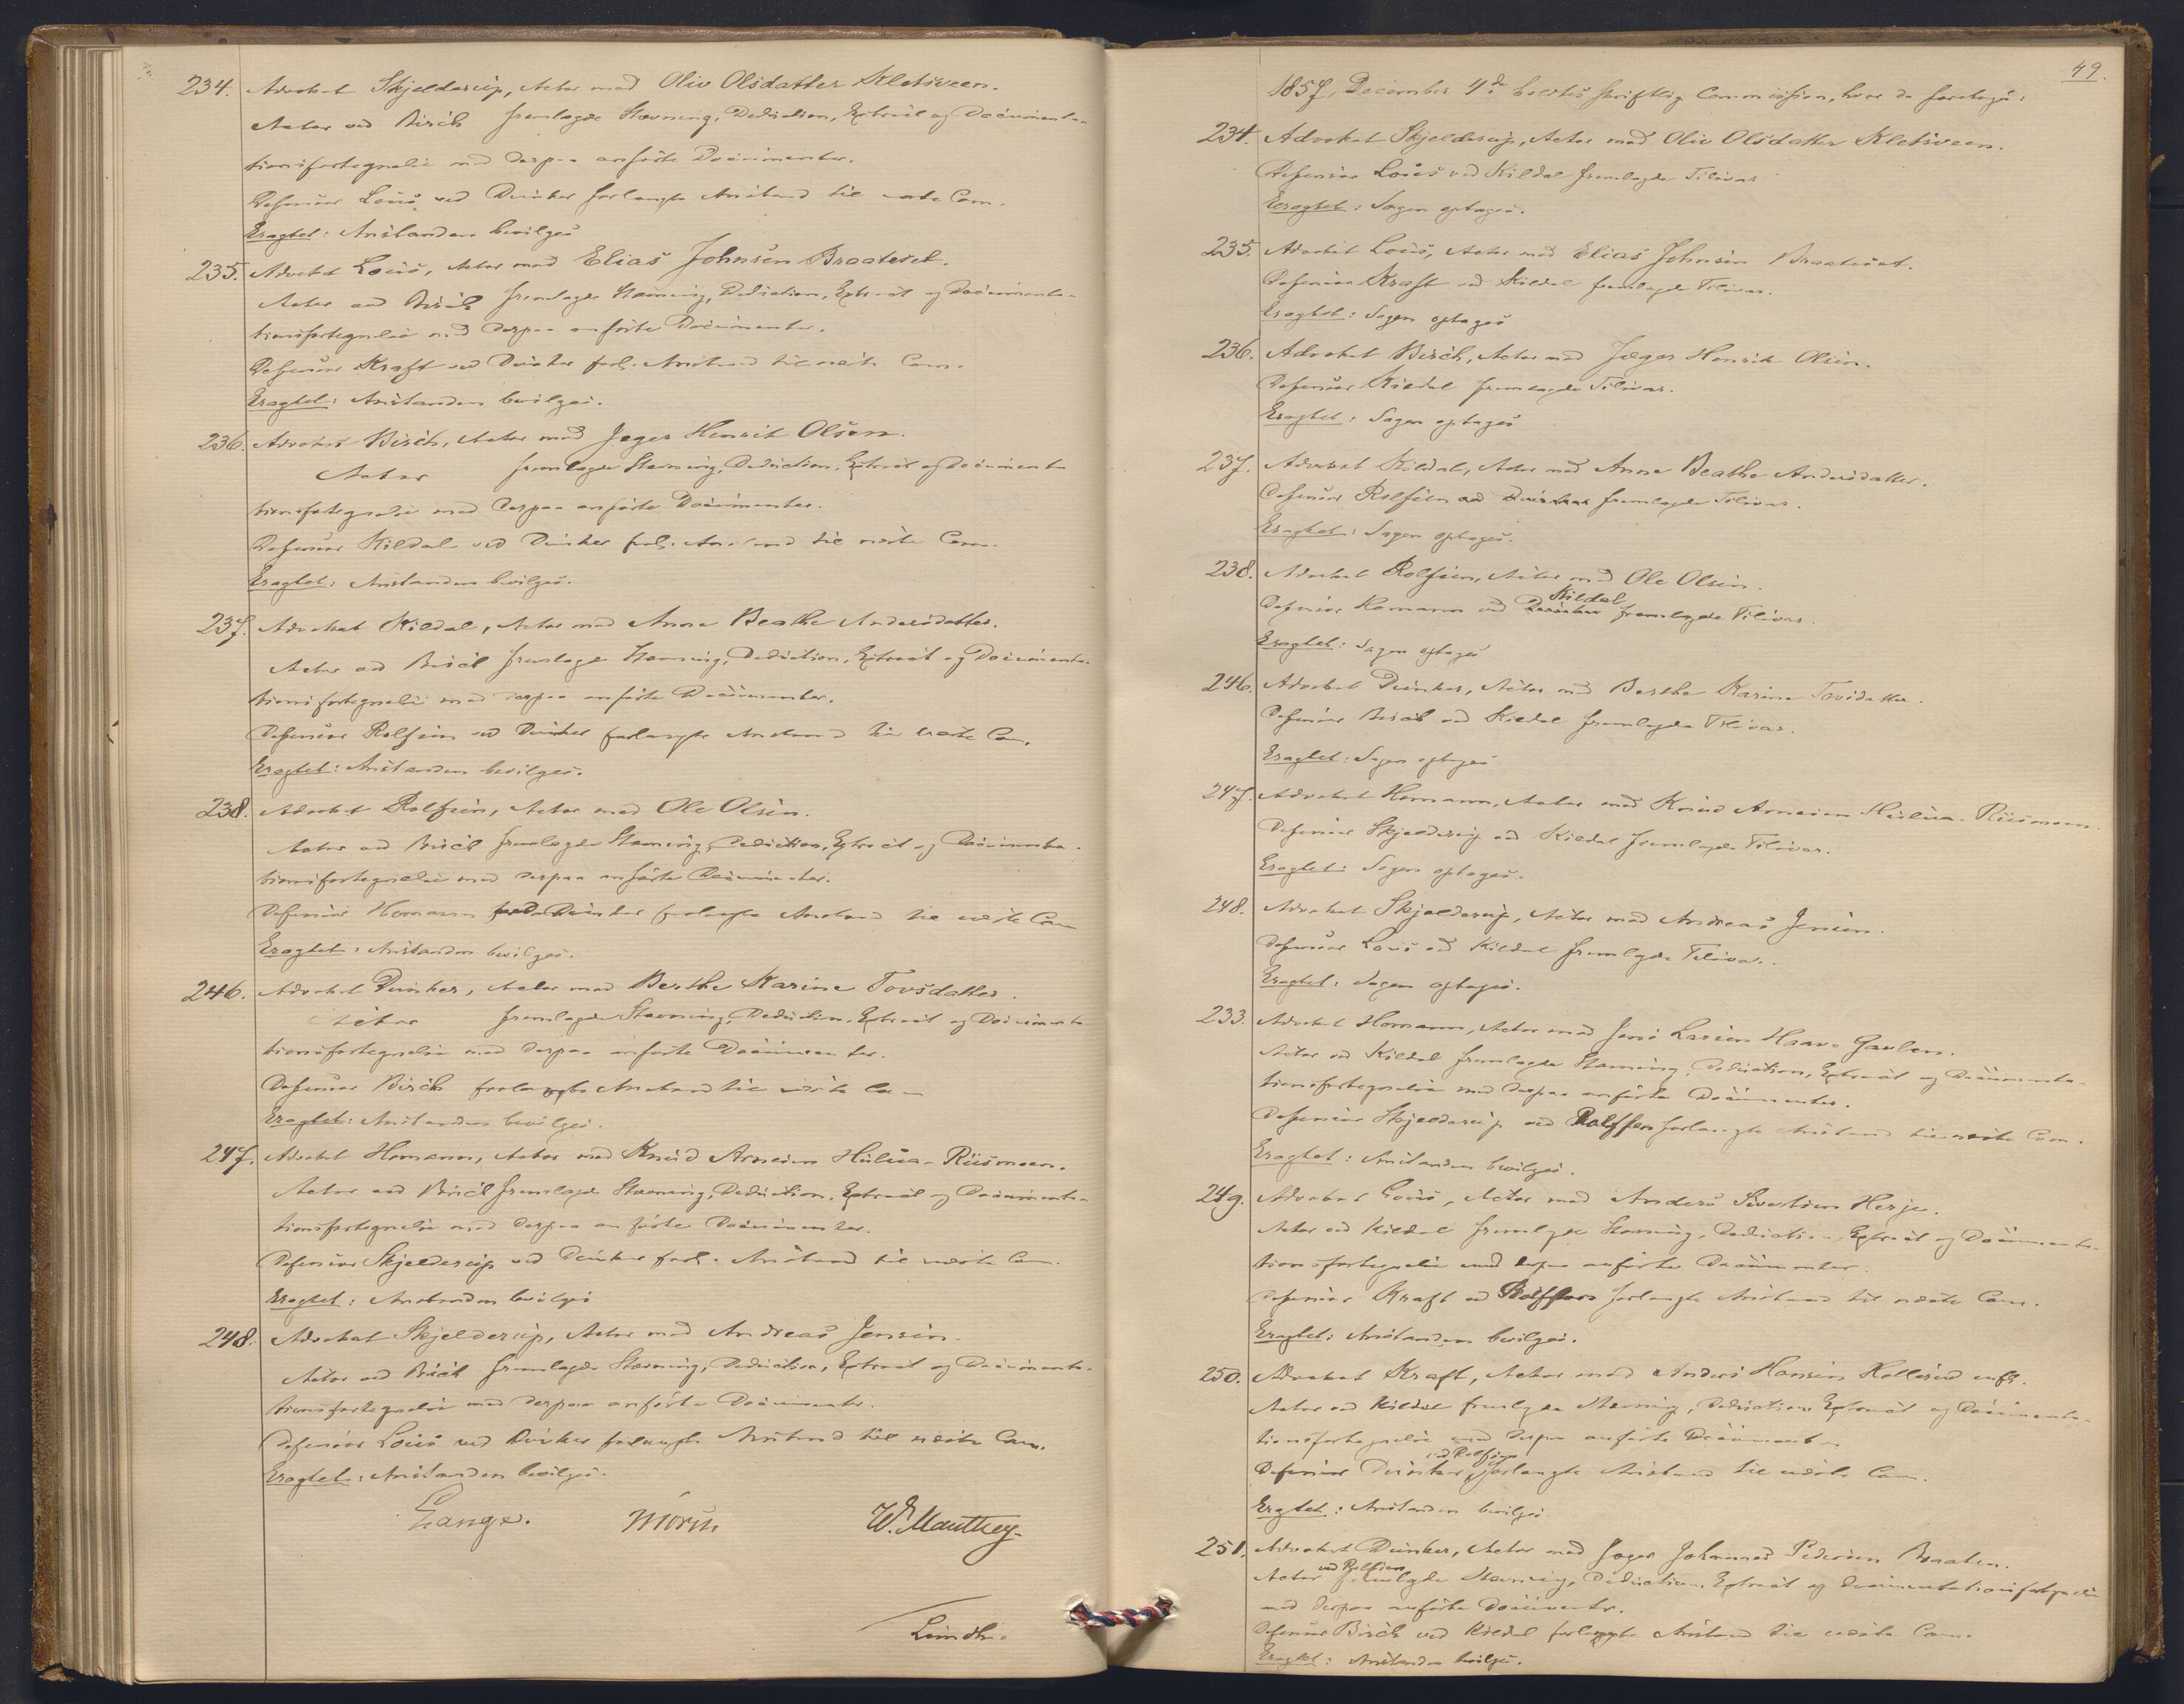 234. Advokat Skjelderup, Actor mod Oliv Olsdatter Kletsveen.
Actor ved Birch fremlagde Stævning, Deduction, Extract og Documenta-
tionsfortegnelse med derpaa anførte Documenter.
Defensor Lous ved Dunker forlangte Anstand til næste Com.
Eragtet: Anstanden bevilges
235. Advokat Lous, Actor mod Elias Johnsen Braateset.
Actor ved Birch fremlagde Stævning, Deduction, Extract og Documenta-
tionsfortegnelse med derpaa anførte Documenter.
Defensor Kraft ved Dunker forl. Anstand til næste Com.
Eragtet: Anstanden bevilges.
236. Advokat Birch, Actor mod Jøger Henrik Olsen.
Actor fremlagde Stævning, Deduction, Extract og Documenta
tionsfortegnelse med derpaa anførte Documenter.
Defensor Kildal ved Dunker forl. Anstand til næste Com.
Eragtet: Anstanden bevilges.
237. Advokat Kildal, Actor mod Anne Beathe Andersdatter.
Actor ved Birch fremlagde Stævning, Deduction, Extract og Documenta-
tionsfortegnelse med derpaa anførte Documenter.
Defensor Rolfsen ved Dunker forlangte Anstand til næste Com.
Eragtet: Anstanden bevilges.
238. Advokat Rolfsen, Actor mod Ole Olsen.
Actor ved Birch fremlagde Stævning, Deduction, Extract og Documenta-
tionsfortegnelse med derpaa anførte Documenter.
Defensor Homann ved Dunker forlangte Anstand til næste Com
Eragtet: Anstanden bevilges.
246. Advokat Dunker, Actor mod Berthe Karine Tovsdatter.
Actor fremlagde Stævning, Deduction, Extract og Documenta
tionsfortegnelse med derpaa anførte Documenter.
Defensor Birch forlangte Anstand til næste Com
Eragtet: Anstanden bevilges.
247. Advokat Homann, Actor mod Knud Arnesen Hulua-Riismoen.
Actor ved Birch fremlagde Stævning, Deduction, Extract og Documenta-
tionsfortegnelse med derpaa anførte Documenter.
Defensor Skjelderup ved Dunker forl. Anstand til næste Com.
Eragtet: Anstanden bevilges
248. Advokat Skjelderup, Actor mod Andreas Jensen.
Actor ved Birch fremlagde Stævning, Deduction, Extract og Documenta-
tionsfortegnelse med derpaa anførte Documenter.
Defensor Lous ved Dunker forlangte Anstand til næste Com.
Eragtet: Anstanden bevilges.
Lange. Morsch W. Manthey
Lundh.
49.
1857, December 4de holdtes skriftlig Commission, hvor da foretoges:
234. Advokat Skjelderup, Actor mod Oliv Olsdatter Kletsveen.
Defensor Lous ved Kildal fremlagde Tilsvar
Eragtet: Sagen optages.
235. Advokat Lous, Actor mod Elias Johnsen Braateset.
Defensor Kraft ved Kildal fremlagde Tilsvar.
Eragtet: Sagen optages
236. Advokat Birch, Actor mod Jøger Henrik Olsen.
Defensor Kildal fremlagde Tilsvar.
Eragtet: Sagen optages
237. Advokat Kildal, Actor mod Anne Beathe Andersdatter.
Defensor Rolfsen ved Dunker fremlagde Tilsvar.
Eragtet: Sagen optages.
238. Advokat Rolfsen, Actor mod Ole Olsen.
Kildal
Defensor Homann ved Dunker fremlagde Tilsvar.
Eragtet: Sagen optages
246. Advokat Dunker, Actor mod Berthe Karine Tovsdatter.
Defensor Birch ved Kildal fremlagde Tilsvar.
Eragtet: Sagen optages
247. Advokat Homann, Actor mod Knud Arnesen Hulua-Riismoen.
Defensor Skjelderup ved Kildal fremlagde Tilsvar.
Eragtet: Sagen optages.
248. Advokat Skjelderup, Actor mod Andreas Jensen.
Defensor Lous ved Kildal fremlagde Tilsvar.
Eragtet: Sagen optages.
233. Advokat Homann, Actor mod Jens Larsen Haave-Gaulen.
Actor ved Kildal fremlagde Stævning, Deduction, Extract og Documenta-
tionsfortegnelse med derpaa anførte Documenter.
Defensor Skjelderup ved Rolfsen forlangte Anstand til næste Com.
Eragtet: Anstanden bevilges.
249. Advokat Lous, Actor mod Anders Sivertsen Herje.
Actor ved Kildal fremlagde Stævning, Deduction, Extract og Documenta-
tionsfortegnelse med derpaa anførte Documenter.
Defensor Kraft ved Rolfsen forlangte Anstand til næste Com.
Eragtet: Anstanden bevilges.
250. Advokat Kraft, Actor mod Anders Hansen Hellerud mfl.
Actor ved Kildal fremlagde Stævning, Deduction, Extract og Documenta-
tionsfortegnelse med derpaa anførte Documenter
ved Rolfsen
Defensor Dunker forlangte Anstand til næste Com.
Eragtet: Anstanden bevilges.
251. Advokat Dunker, Actor mod Jøger Johannes Pedersen Braaten.
ved Rolfsen
Actor fremlagde Stævning, Deduction, Extract og Documentationsfortegnelse
med derpaa anførte Documenter.
Defensor Birch ved Kildal forlangte Anstand til næste Com.
Eragtet: Anstanden bevilges.